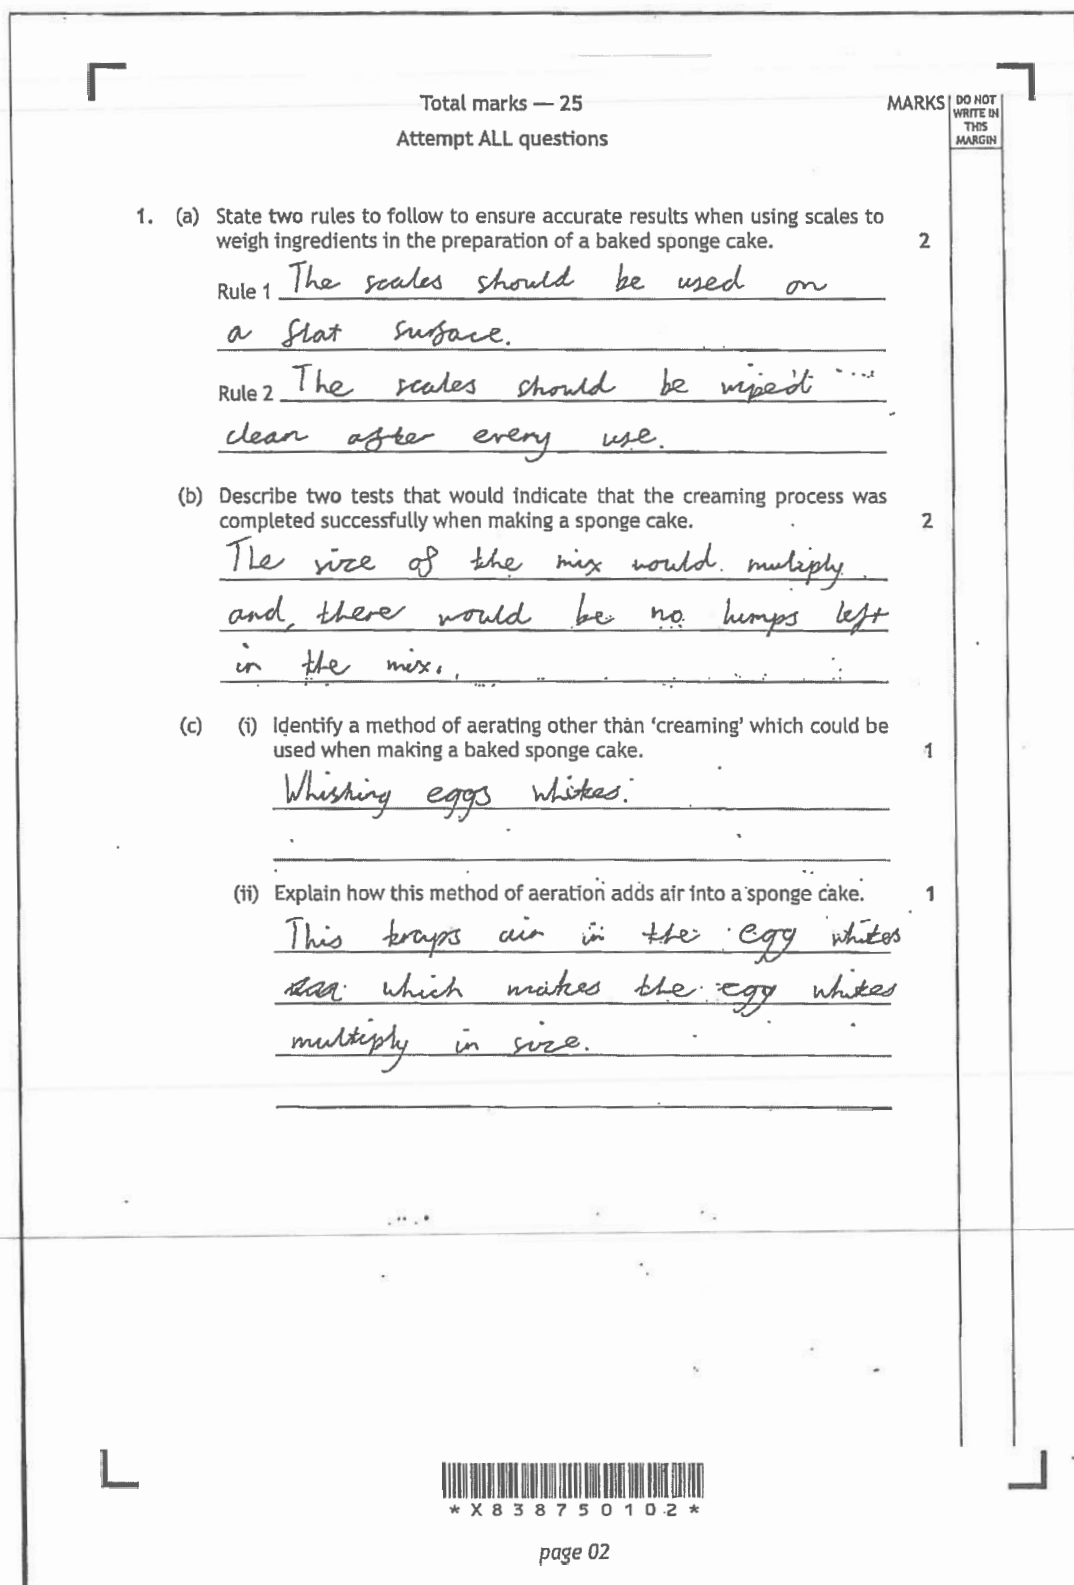 Total marks — 25
MARKS
DO NOT
WRITE IN
THIS
MARGIN
Attempt ALL questions
1. (a) State two rules to follow to ensure accurate results when using scales to
weigh ingredients in the preparation of a baked sponge cake. 2
Rule 1 The scales should be used on
a flat surface.
Rule 2 The scales should be wiped
clean after every use.
(b) Describe two tests that would indicate that the creaming process was
completed successfully when making a sponge cake. 2
The size of the mix would multiply
and, there would be no lumps left
in the mix.
(c) (i) Identify a method of aerating other than ‘creaming’ which could be
used when making a baked sponge cake. 1
Whisking eggs whites.
(ii) Explain how this method of aeration adds air into a sponge cake. 1
This traps air in the egg whites
which makes the egg whites
multiply in size.
* X 8 3 8 7 5 0 1 0 2 *
page 02